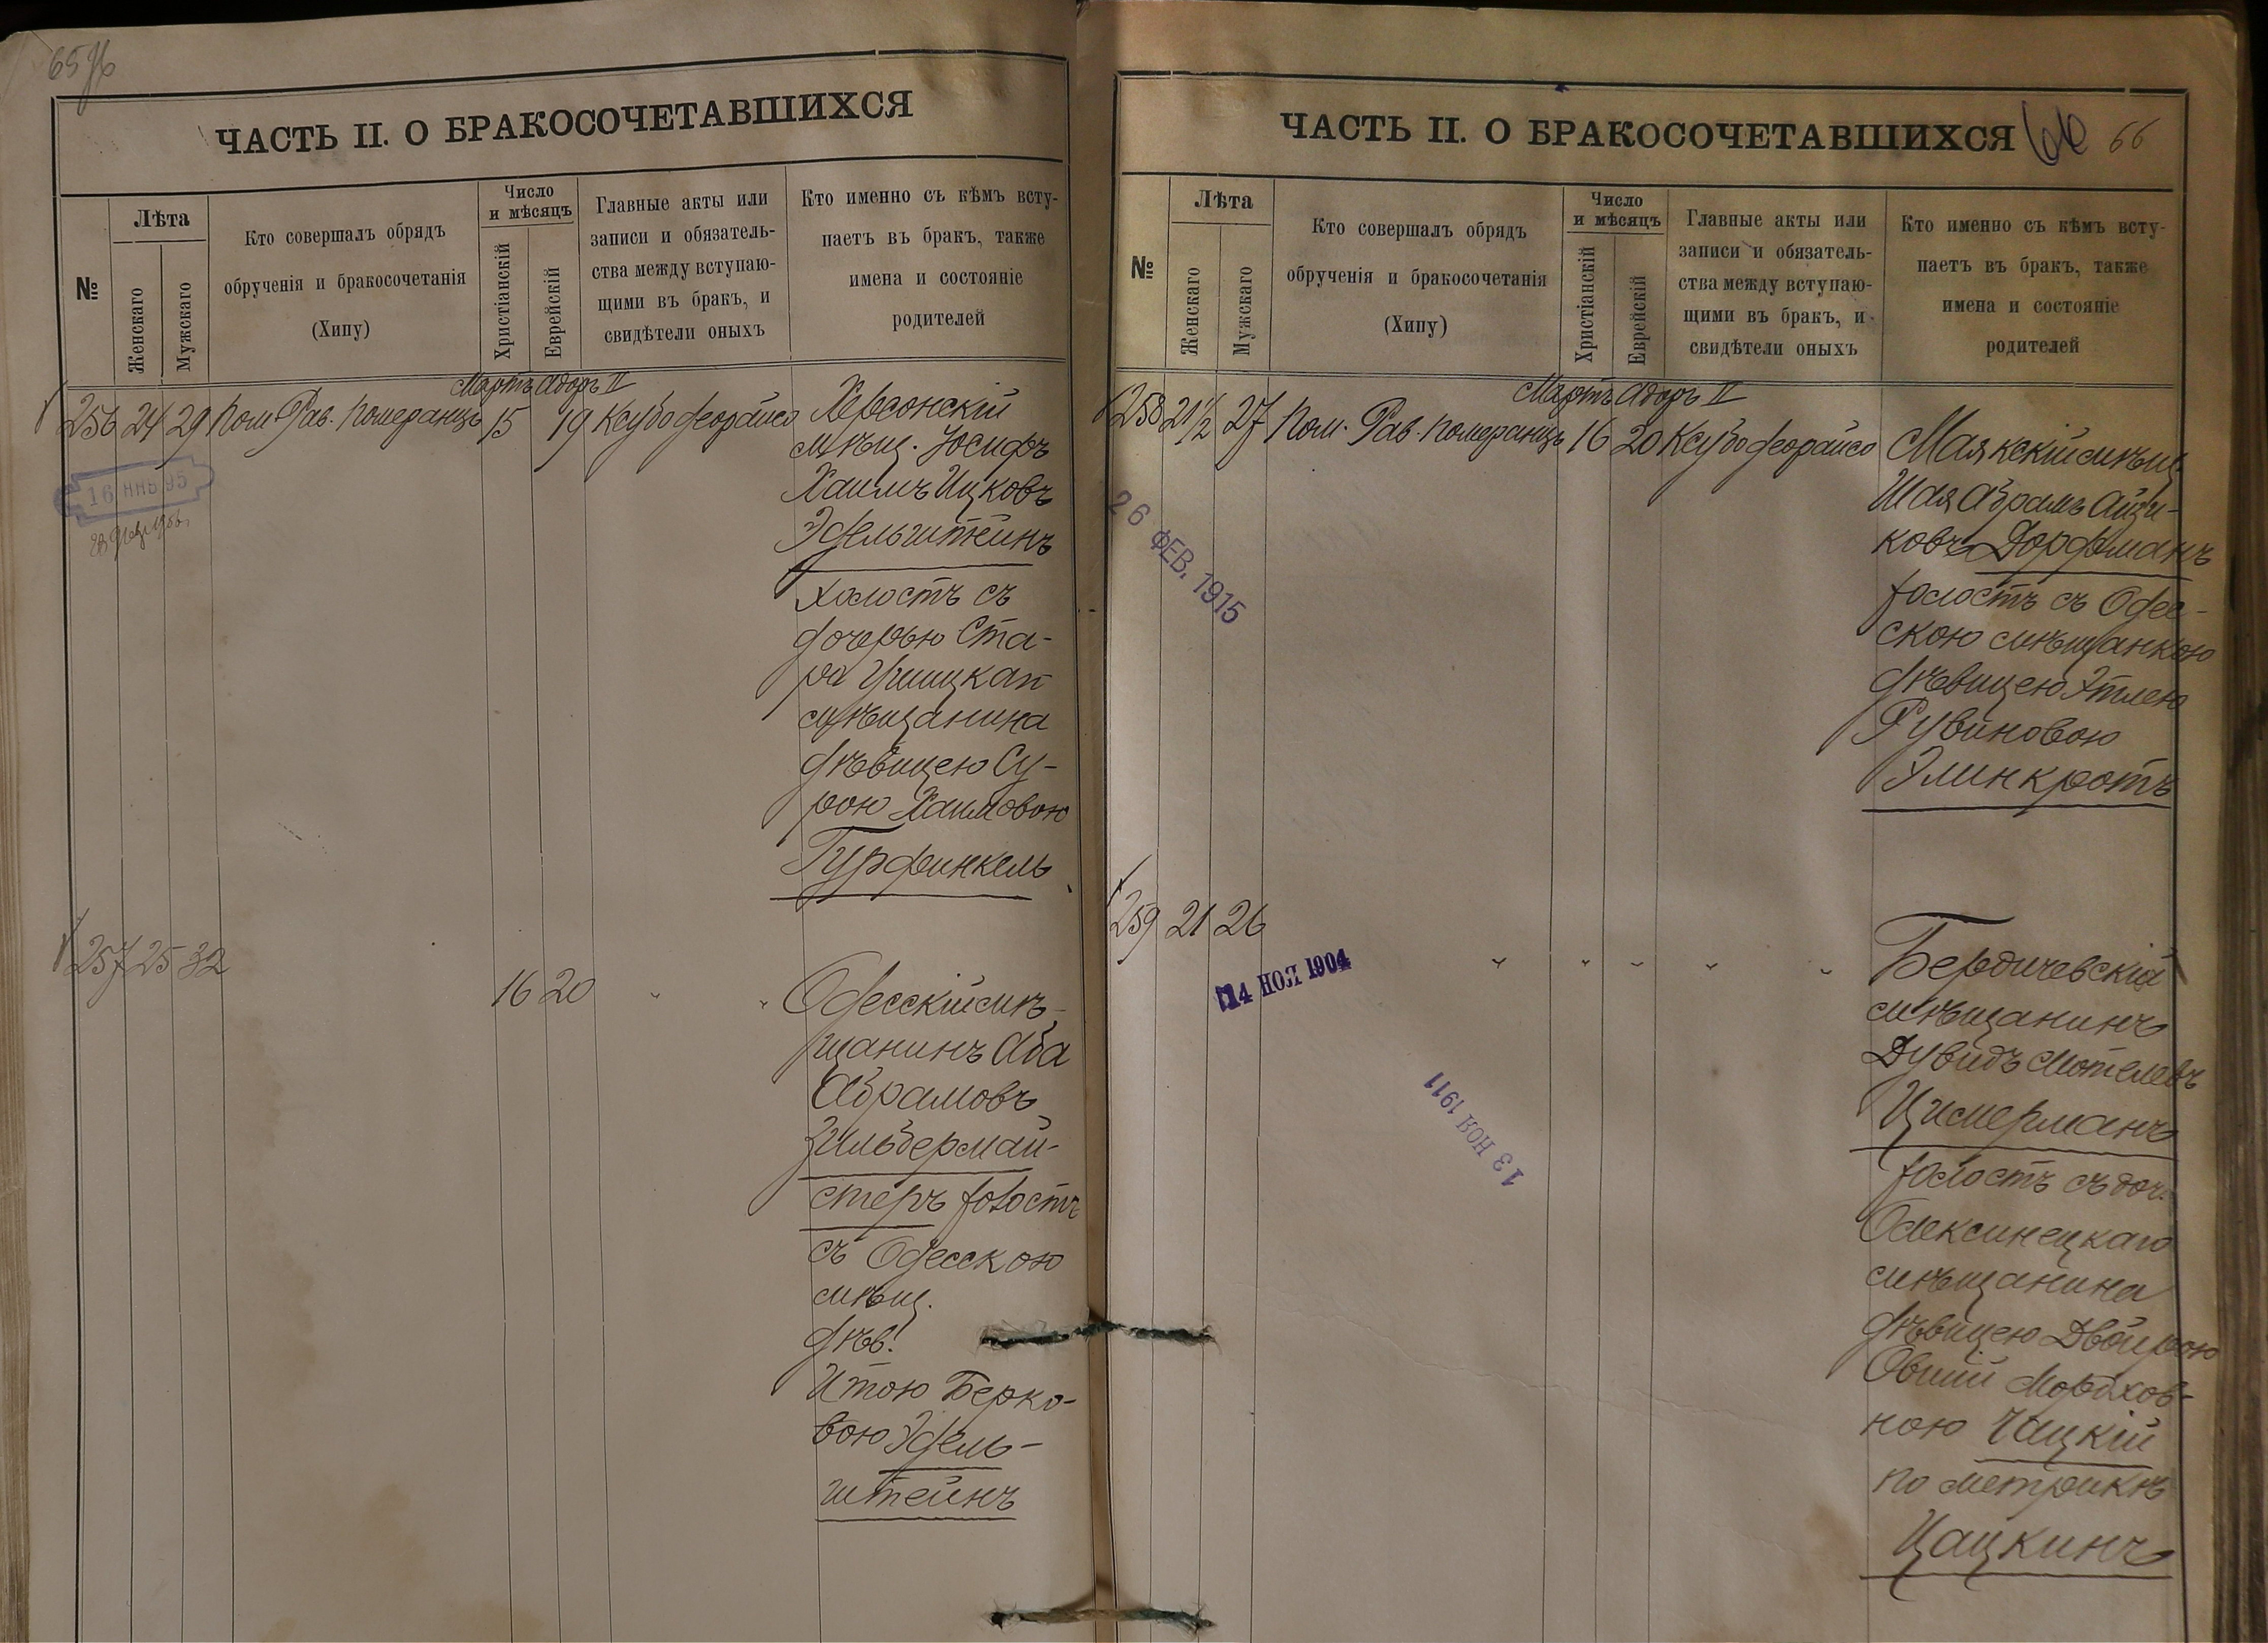 65 об
ЧАСТЬ II. О БРАКОСОЧЕТАВШИХСЯ
№
Лѣта
Женскаго
Мужскаго
Кто совершалъ обрядъ
обрученія и бракосочетанія
(Хипу)
Число
и мѣсяцъ
Христіанскій
Еврейскій
Главные акты или
записи и обязатель-
ства между вступаю-
щими въ брак, и
свидѣтели оныхъ
Кто именно съ кѣмъ всту-
паетъ въ бракъ, также
имена и состояніе
родителей
Мартъ Адоръ II
256 24 29 Пом. Рав. Померанцъ 15 19 Ксубо деорайсо
Херсонскій
мѣщ. Іосифъ
Хаимъ Ицковъ
Эдельштейнъ
холостъ съ
дочерью Ста-
ро Ушицкаго
мѣщанина
дѣвицею Су-
рою Хаимовою
Гурфинкель
16 ЯНВ 95
257 25 32
16 20
Одесскій мѣ-
щанинъ Аба
Абрамовъ
Зильбермай-
стеръ холостъ
съ Одесскою
мѣщ.
дѣв.
Итою Берко-
вою Эдель-
штейнъ
ЧАСТЬ II. О БРАКОСОЧЕТАВШИХСЯ
66
66
№
Лѣта
Женскаго
Мужскаго
Кто совершалъ обрядъ
обрученія и бракосочетанія
(Хипу)
Число
и мѣсяцъ
Христіанскій
Еврейскій
Главные акты или
записи и обязатель-
ства между вступаю-
щими въ брак, и
свидѣтели оныхъ
Кто именно съ кѣмъ всту-
паетъ въ бракъ, также
имена и состояніе
родителей
Мартъ Адоръ II
258 21 1/2 27 Пом. Рав. Померанцъ 16 20 Ксубо деорайсо
Маякскій мѣщ.
Шая Абрамъ Айзи-
ковъ Дорфманъ
холостъ съ Одес-
скою мѣщанкою
дѣвицею Этлею
Рувиновою
Элинкротъ
26 ФЕВ. 1915
259 21 26
14 НОЯ 1904
13 НОЯ 1911
Бердичевскій
мѣщанинъ
Дувидъ Мотелевъ
Цимерманъ
холостъ съ доч.
Олексинецкаго
мѣщанина
дѣвицею Двойрою
Овшій Мордхов-
ною Чацкій
по метрикѣ
Цацкинъ